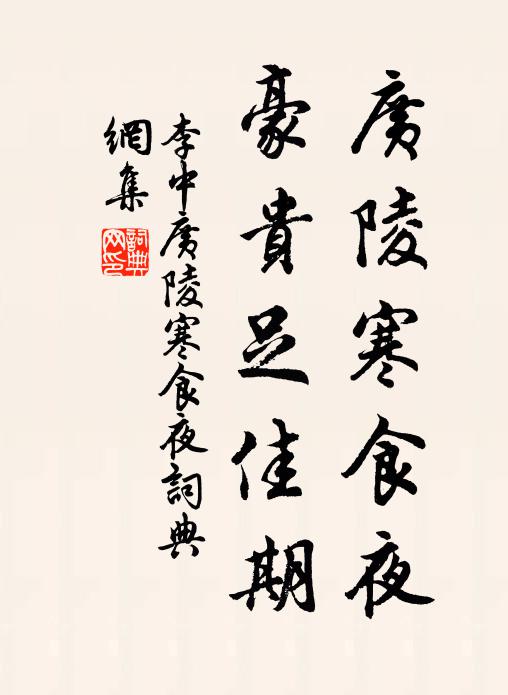 廣陵寒食夜
豪貴足佳期
李中廣陵寒食夜詞典
網集
詞典
网印